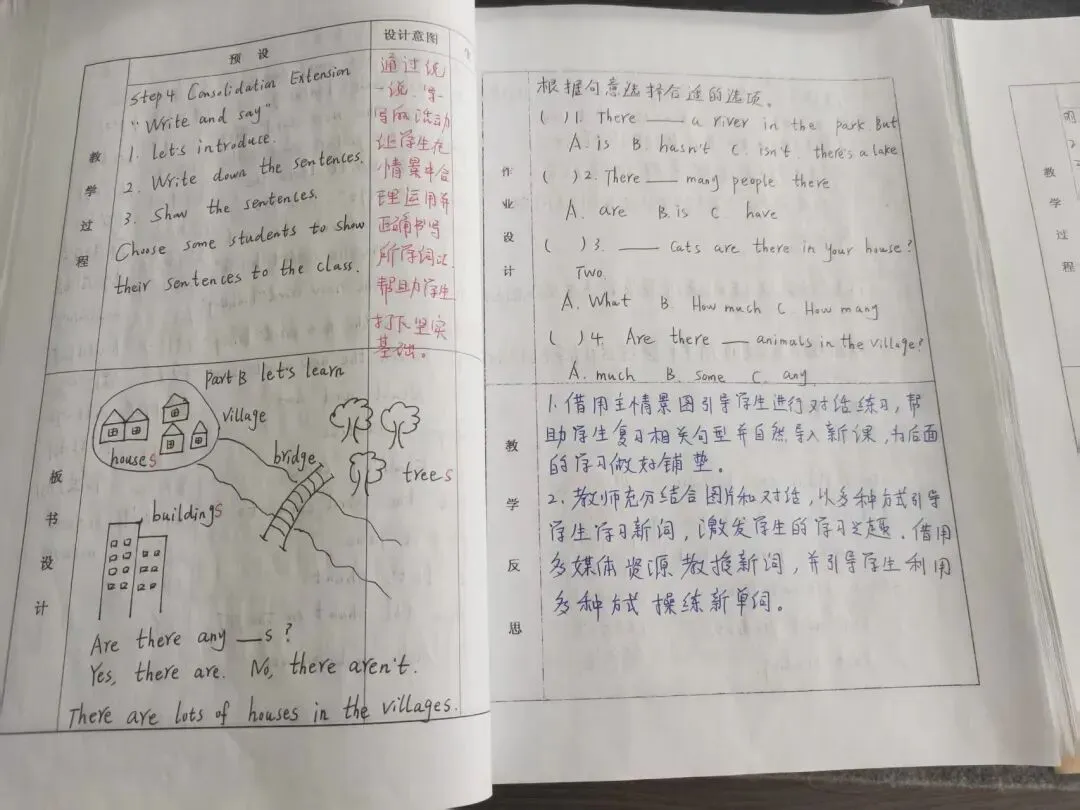 预 设
设计意图
教学过程
Step 4 Consolidation Extension
"Write and say".
1. Let's introduce.
2. Write down the sentences.
3. Show the sentences.
Choose some students to show
their sentences to the class.
通过说
一说、写一
写的活动
让学生在
情景中合
理运用并
正确书写
所学词汇.
帮助学生
打下坚实
基础。
板书设计
Part B let's learn
village
houses
bridge
trees
buildings
Are there any __s?
Yes, there are. No, there aren't.
There are lots of houses in the villages.
作业设计
根据句意选择合适的选项。
( )1. There ___ a river in the park. But
A. is B. hasn't C. isn't. there's a lake
( )2. There ___ many people there
A. are B. is C have
( )3. ___ cats are there in your house?
Two.
A. What B. How much C. How many
( )4. Are there ___ animals in the village?
A. much B. some C. any
教学反思
1. 借用主情景图引导学生进行对话练习,帮
助学生复习相关句型并自然导入新课,为后面
的学习做好铺垫。
2. 教师充分结合图片和对话,从多种方式引导
学生学习新词,激发学生的学习兴趣. 借用
多媒体资源教授新词,并引导学生利用
多种方式操练新单词。
教学过程